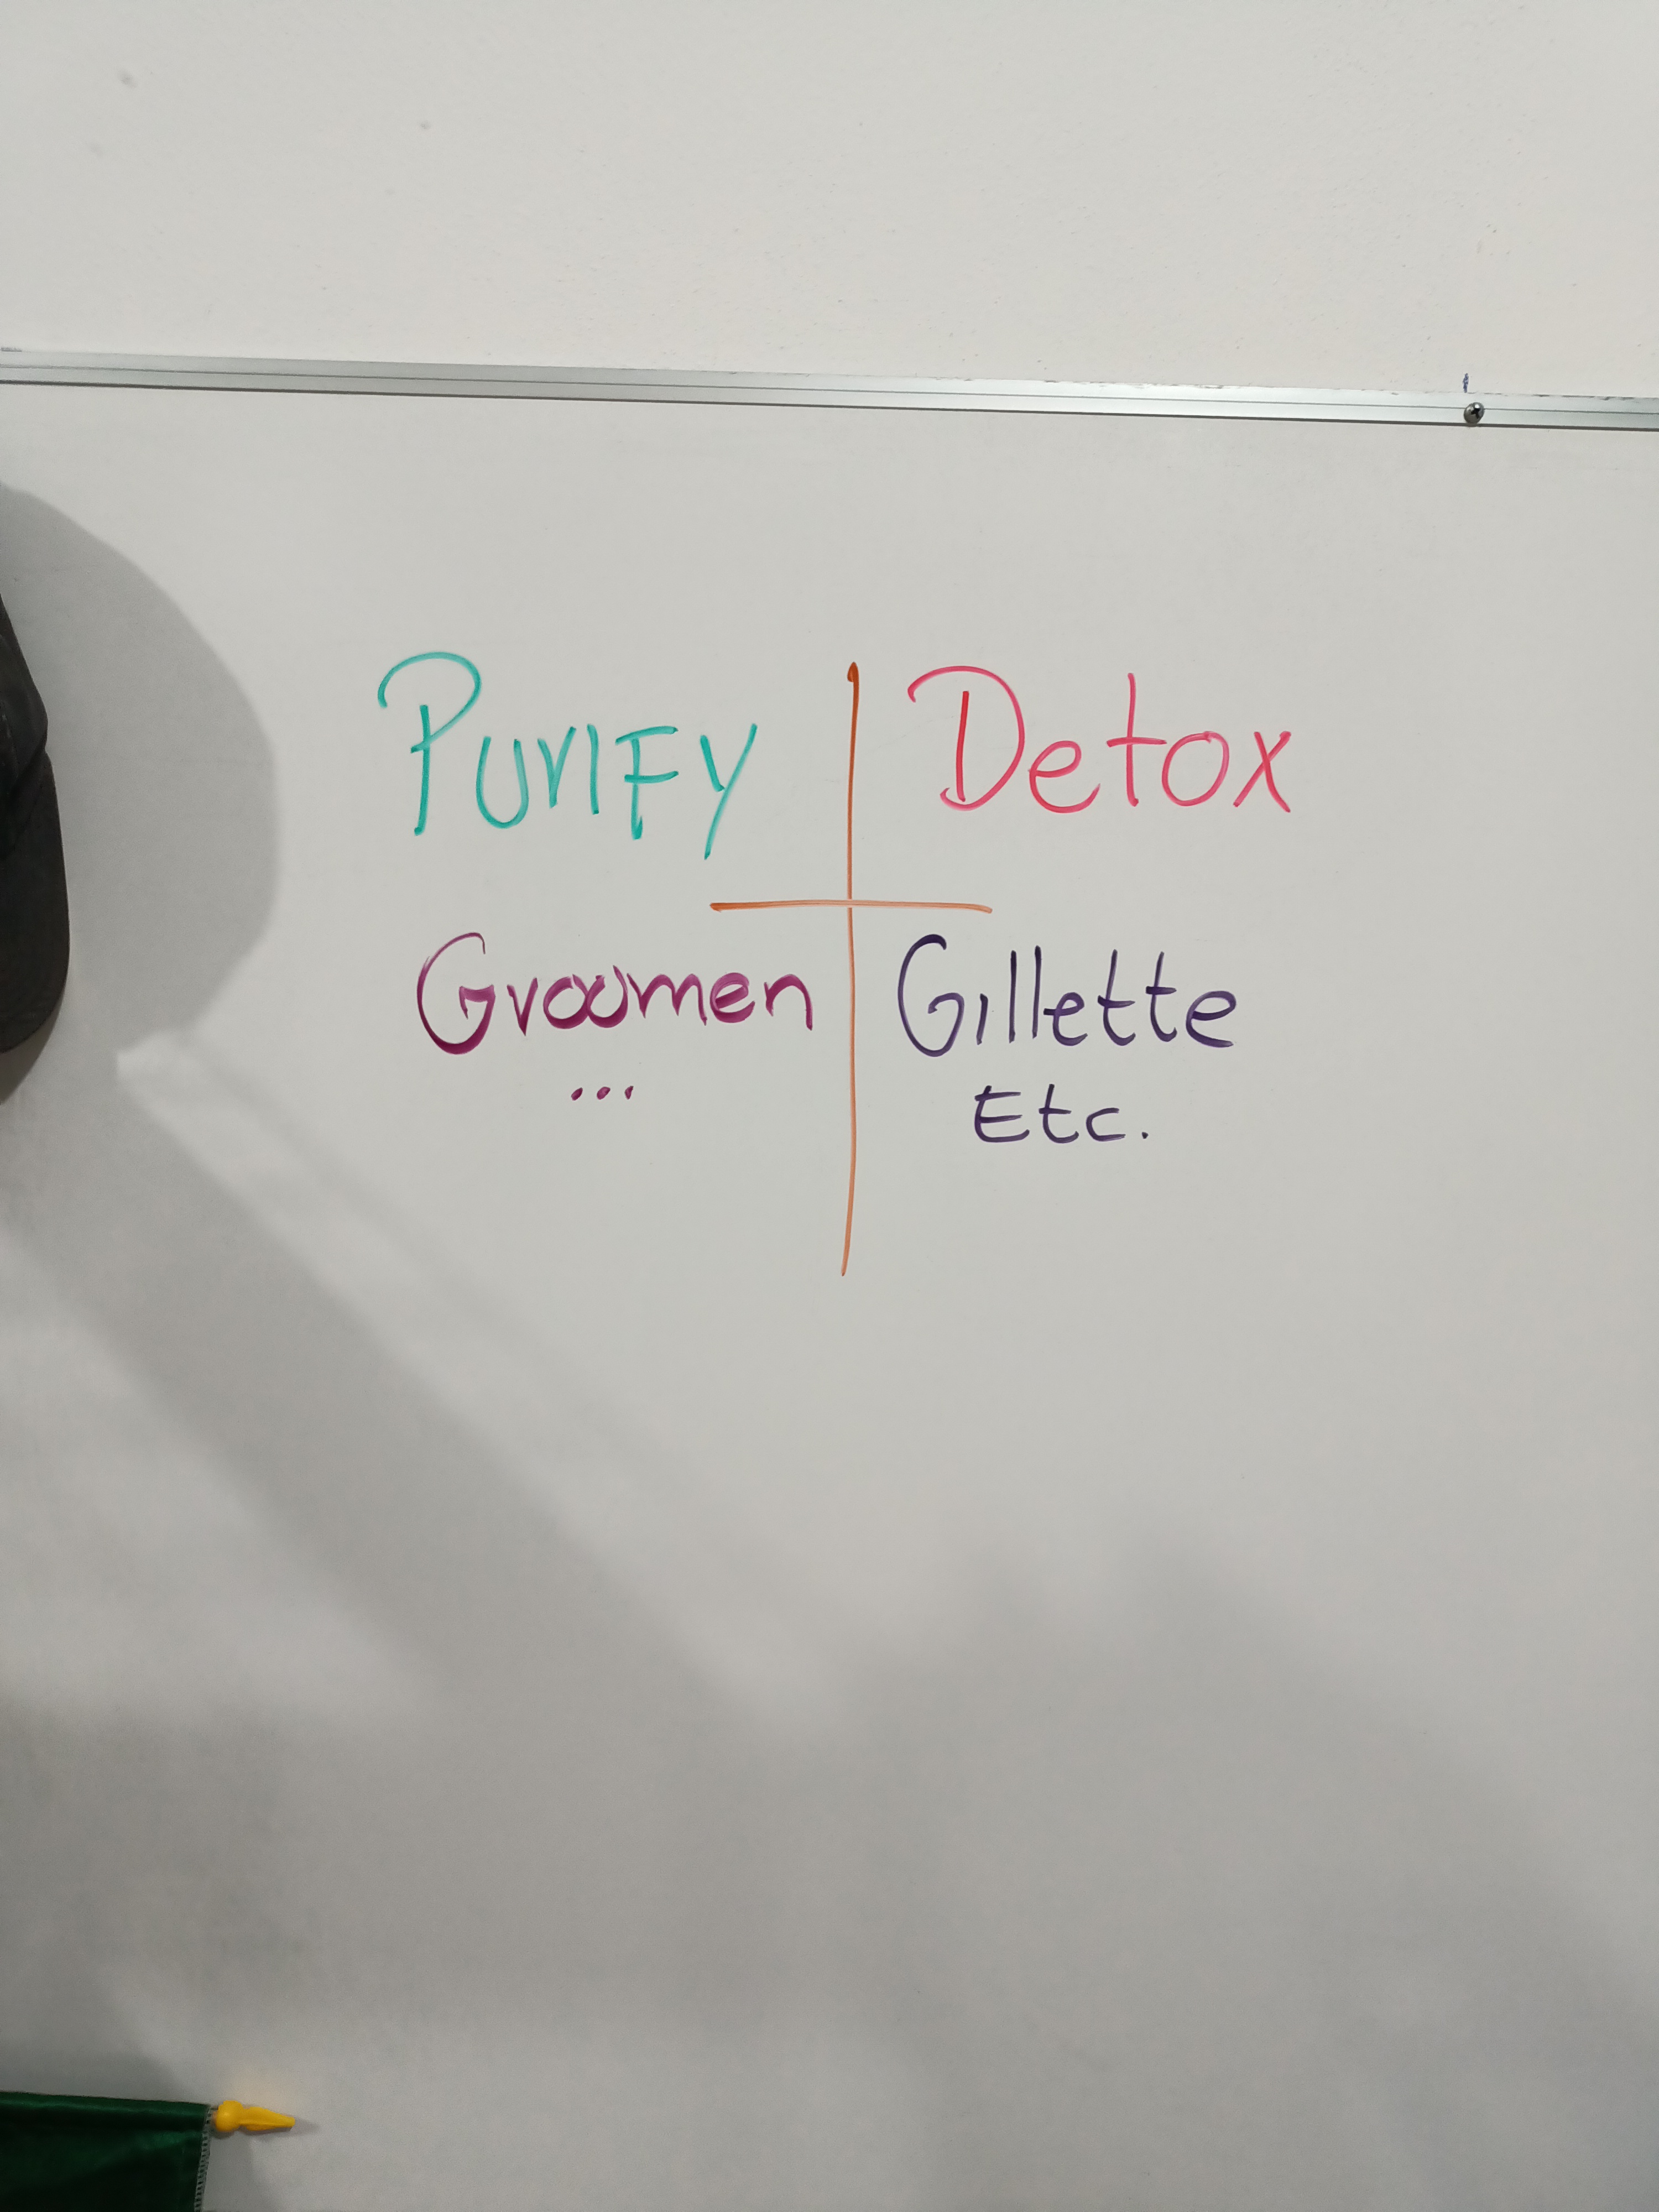 Purify
Detox
Groomen
...
Gillette
Etc.